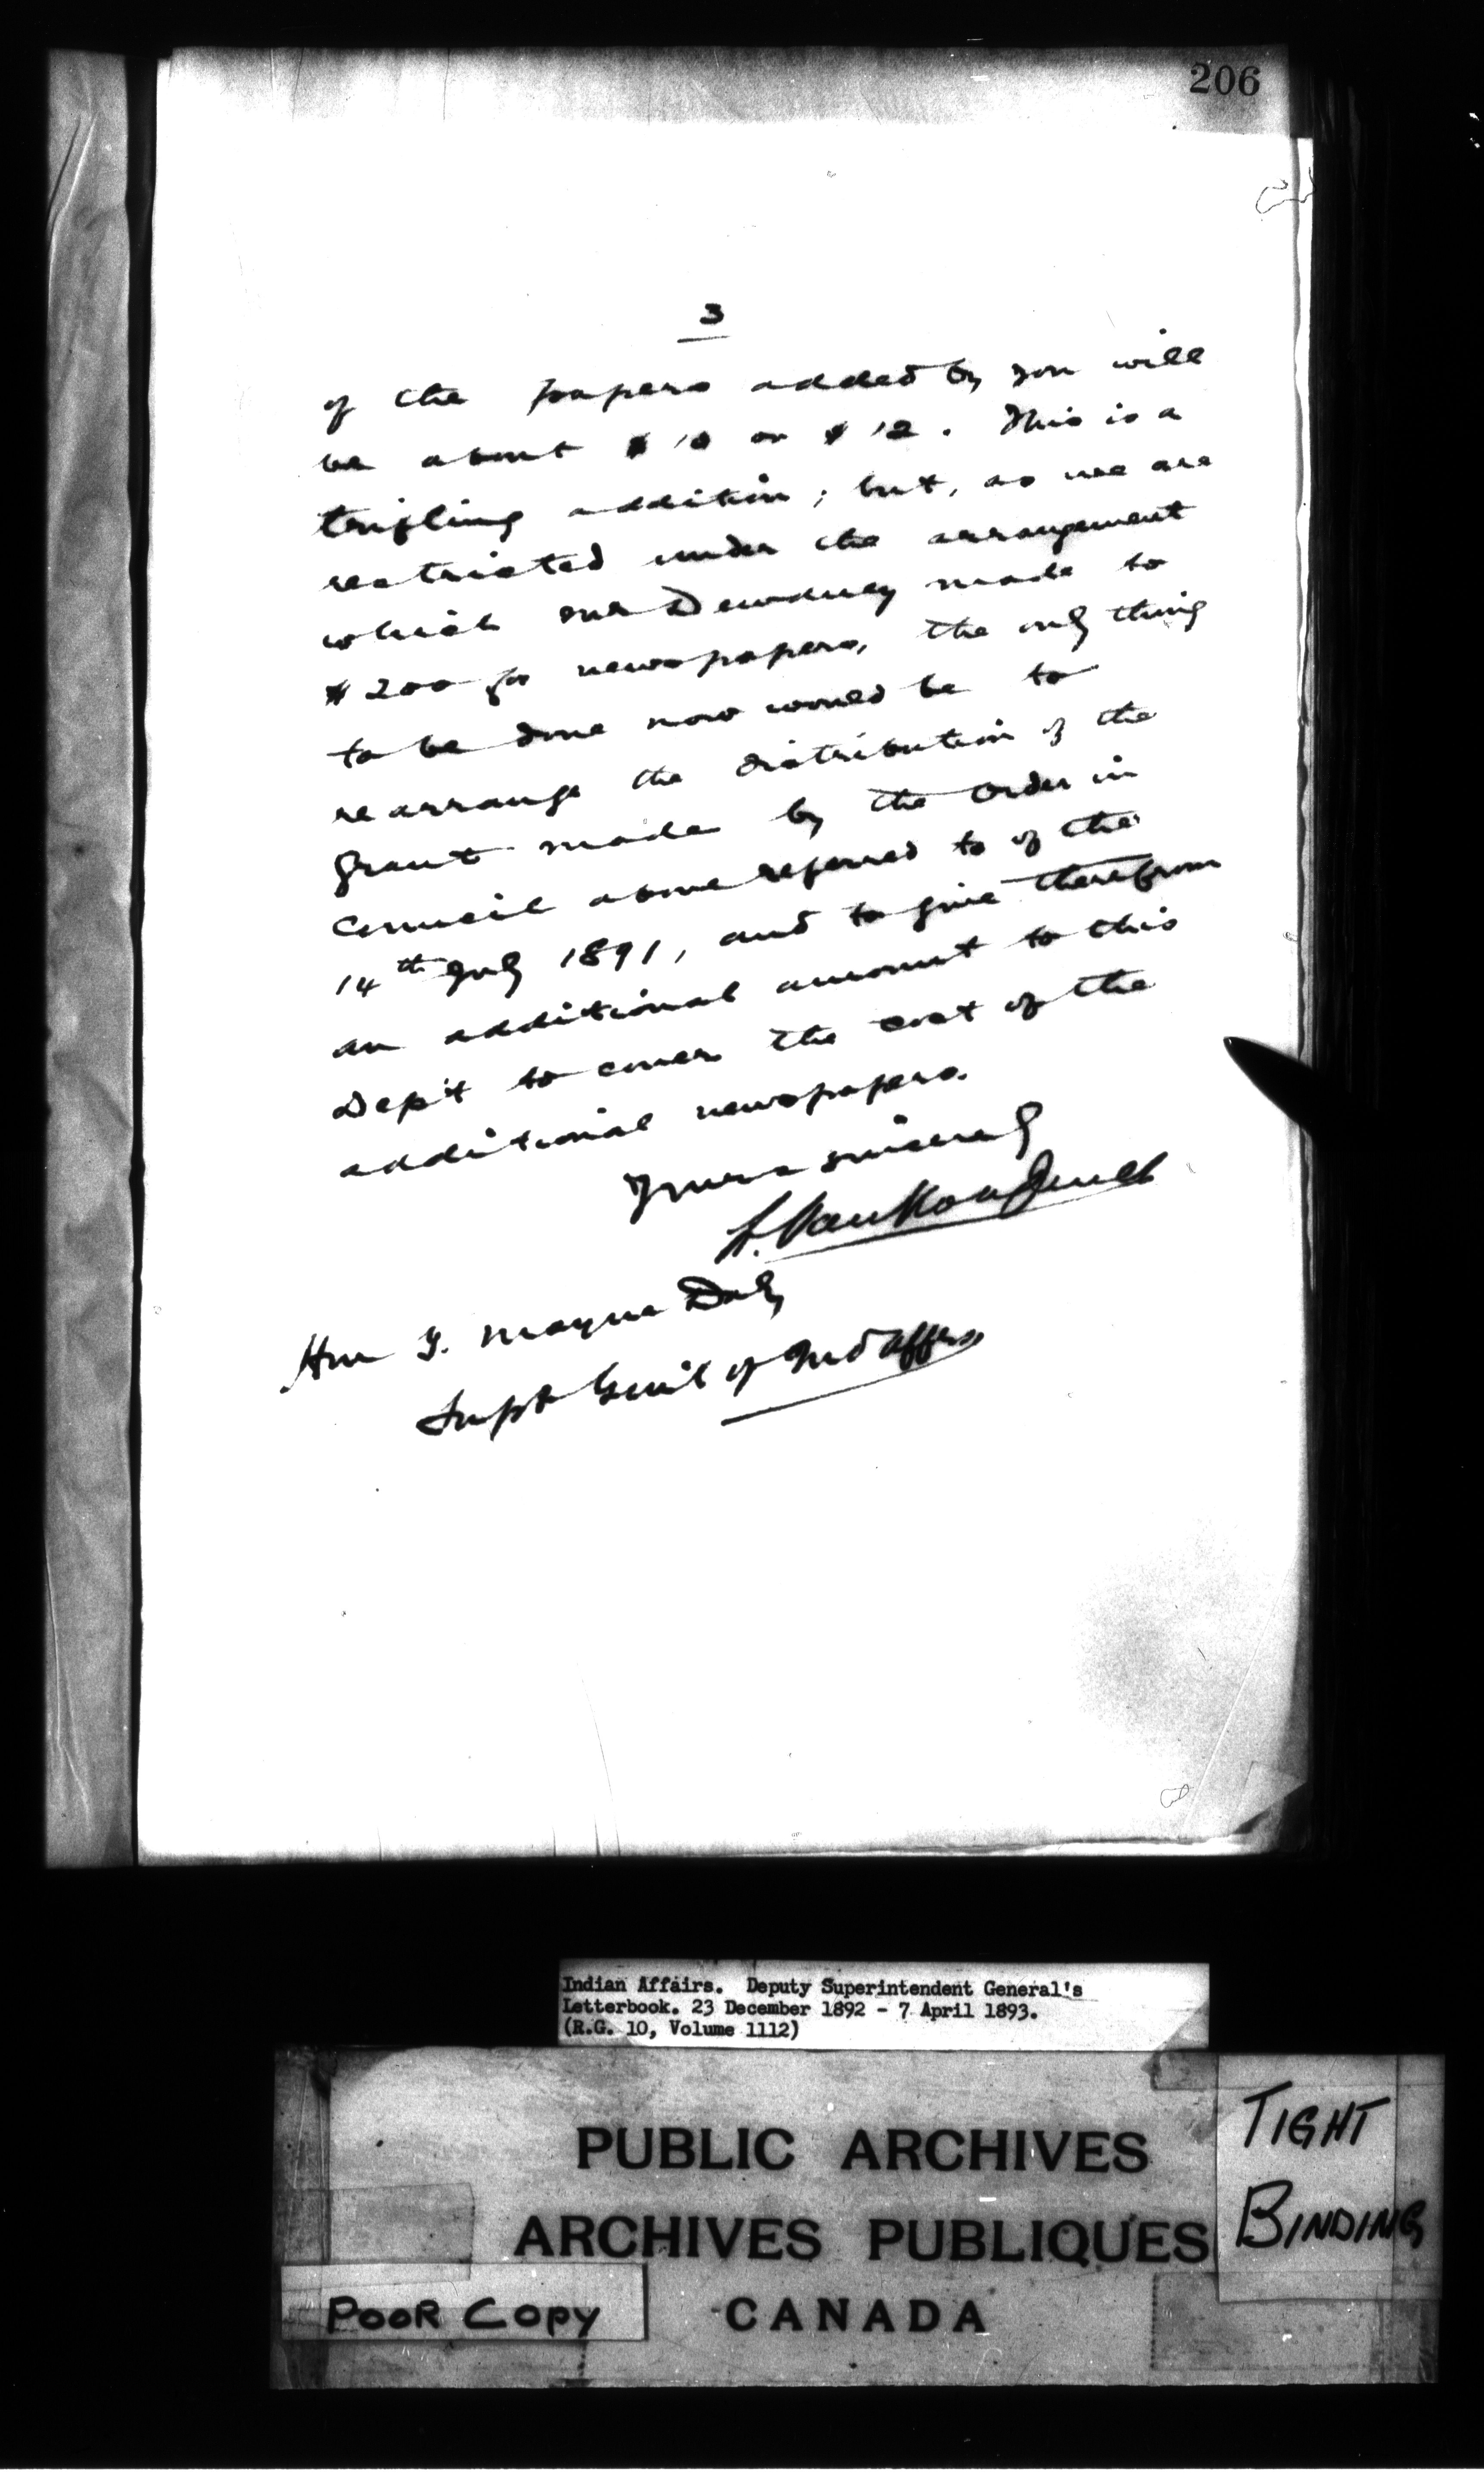 206
3
of the papers added by you will
be about $10 or $12. This is a
trifling addition; but, as we are
restricted under the arrangement
which Mr Dewdney made to
$200 for newspapers, the only thing
to be done now would be to
rearrange the distribution of the
grant made by the Order in
Council above referred to of the
14th July 1891, and to give therefrom
an additional amount to this
Dep't to cover the cost of the
additional newspapers.
Yours sincerely
L. Vankoughnet
Hon T. Mayne Daly
Supt Genl of Ind Affrs
Indian Affairs. Deputy Superintendent General's
Letterbook. 23 December 1892 - 7 April 1893.
(R.G. 10, Volume 1112)
PUBLIC ARCHIVES
ARCHIVES PUBLIQUES
CANADA
TIGHT
BINDING
POOR COPY